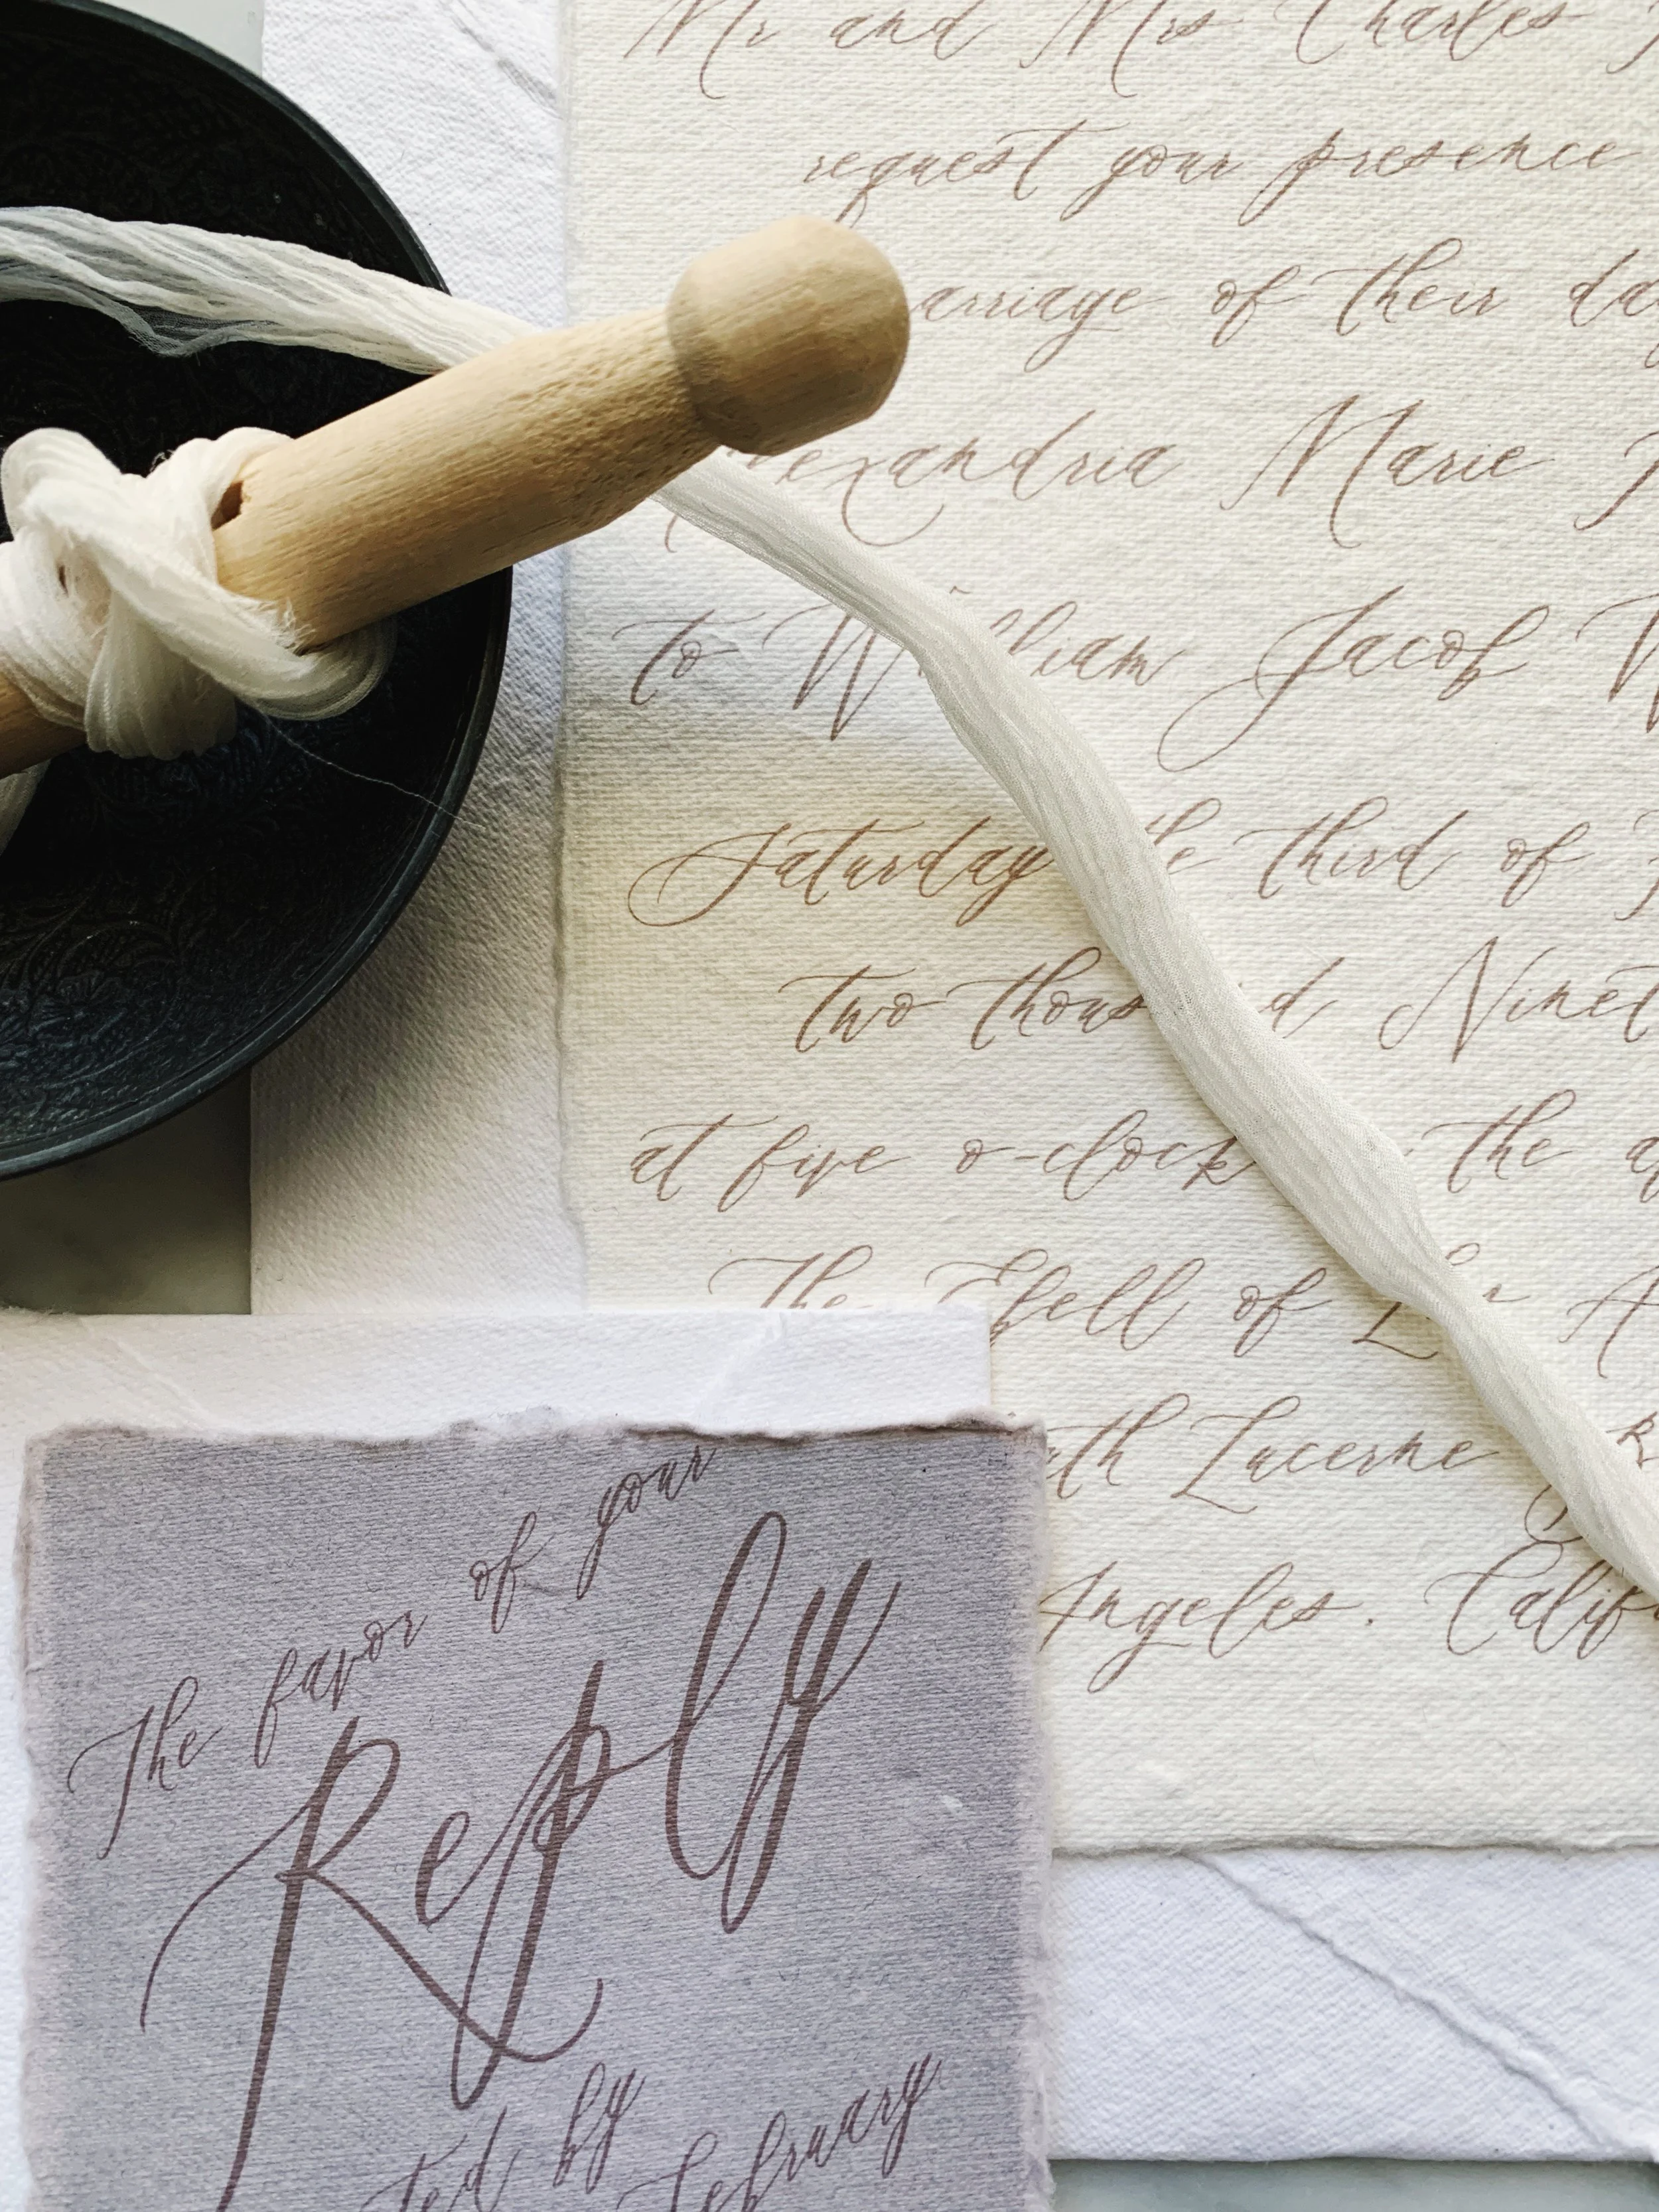 Mr and Mrs Charles
request your presence
arriage of their da
exandria Marie
to William Jacob
Saturday the third of
two thousand Ninet
at five o-clock the a
The Ebell of Los A
uth Lucerne
Angeles. Calif
The favor of your
Reply
ted by
February